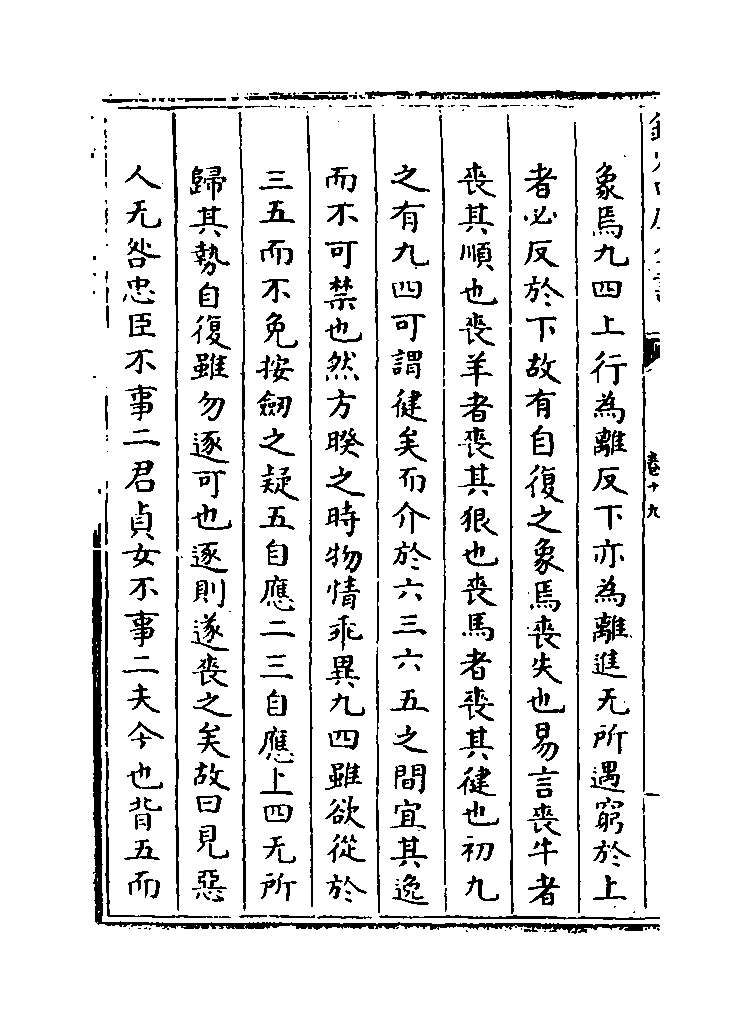 象焉九四上行為離反下亦為離進无所遇窮於上
者必反於下故有自復之象焉喪失也易言喪牛者
喪其順也喪羊者喪其狠也喪馬者喪其健也初九
之有九四可謂健矣而介於六三六五之間宜其逸
而不可禁也然方睽之時物情乖異九四雖欲從於
三五而不免按劒之疑五自應二三自應上四无所
歸其勢自復雖勿逐可也逐則遂喪之矣故曰見惡
人无咎忠臣不事二君貞女不事二夫今也背五而
卷十九